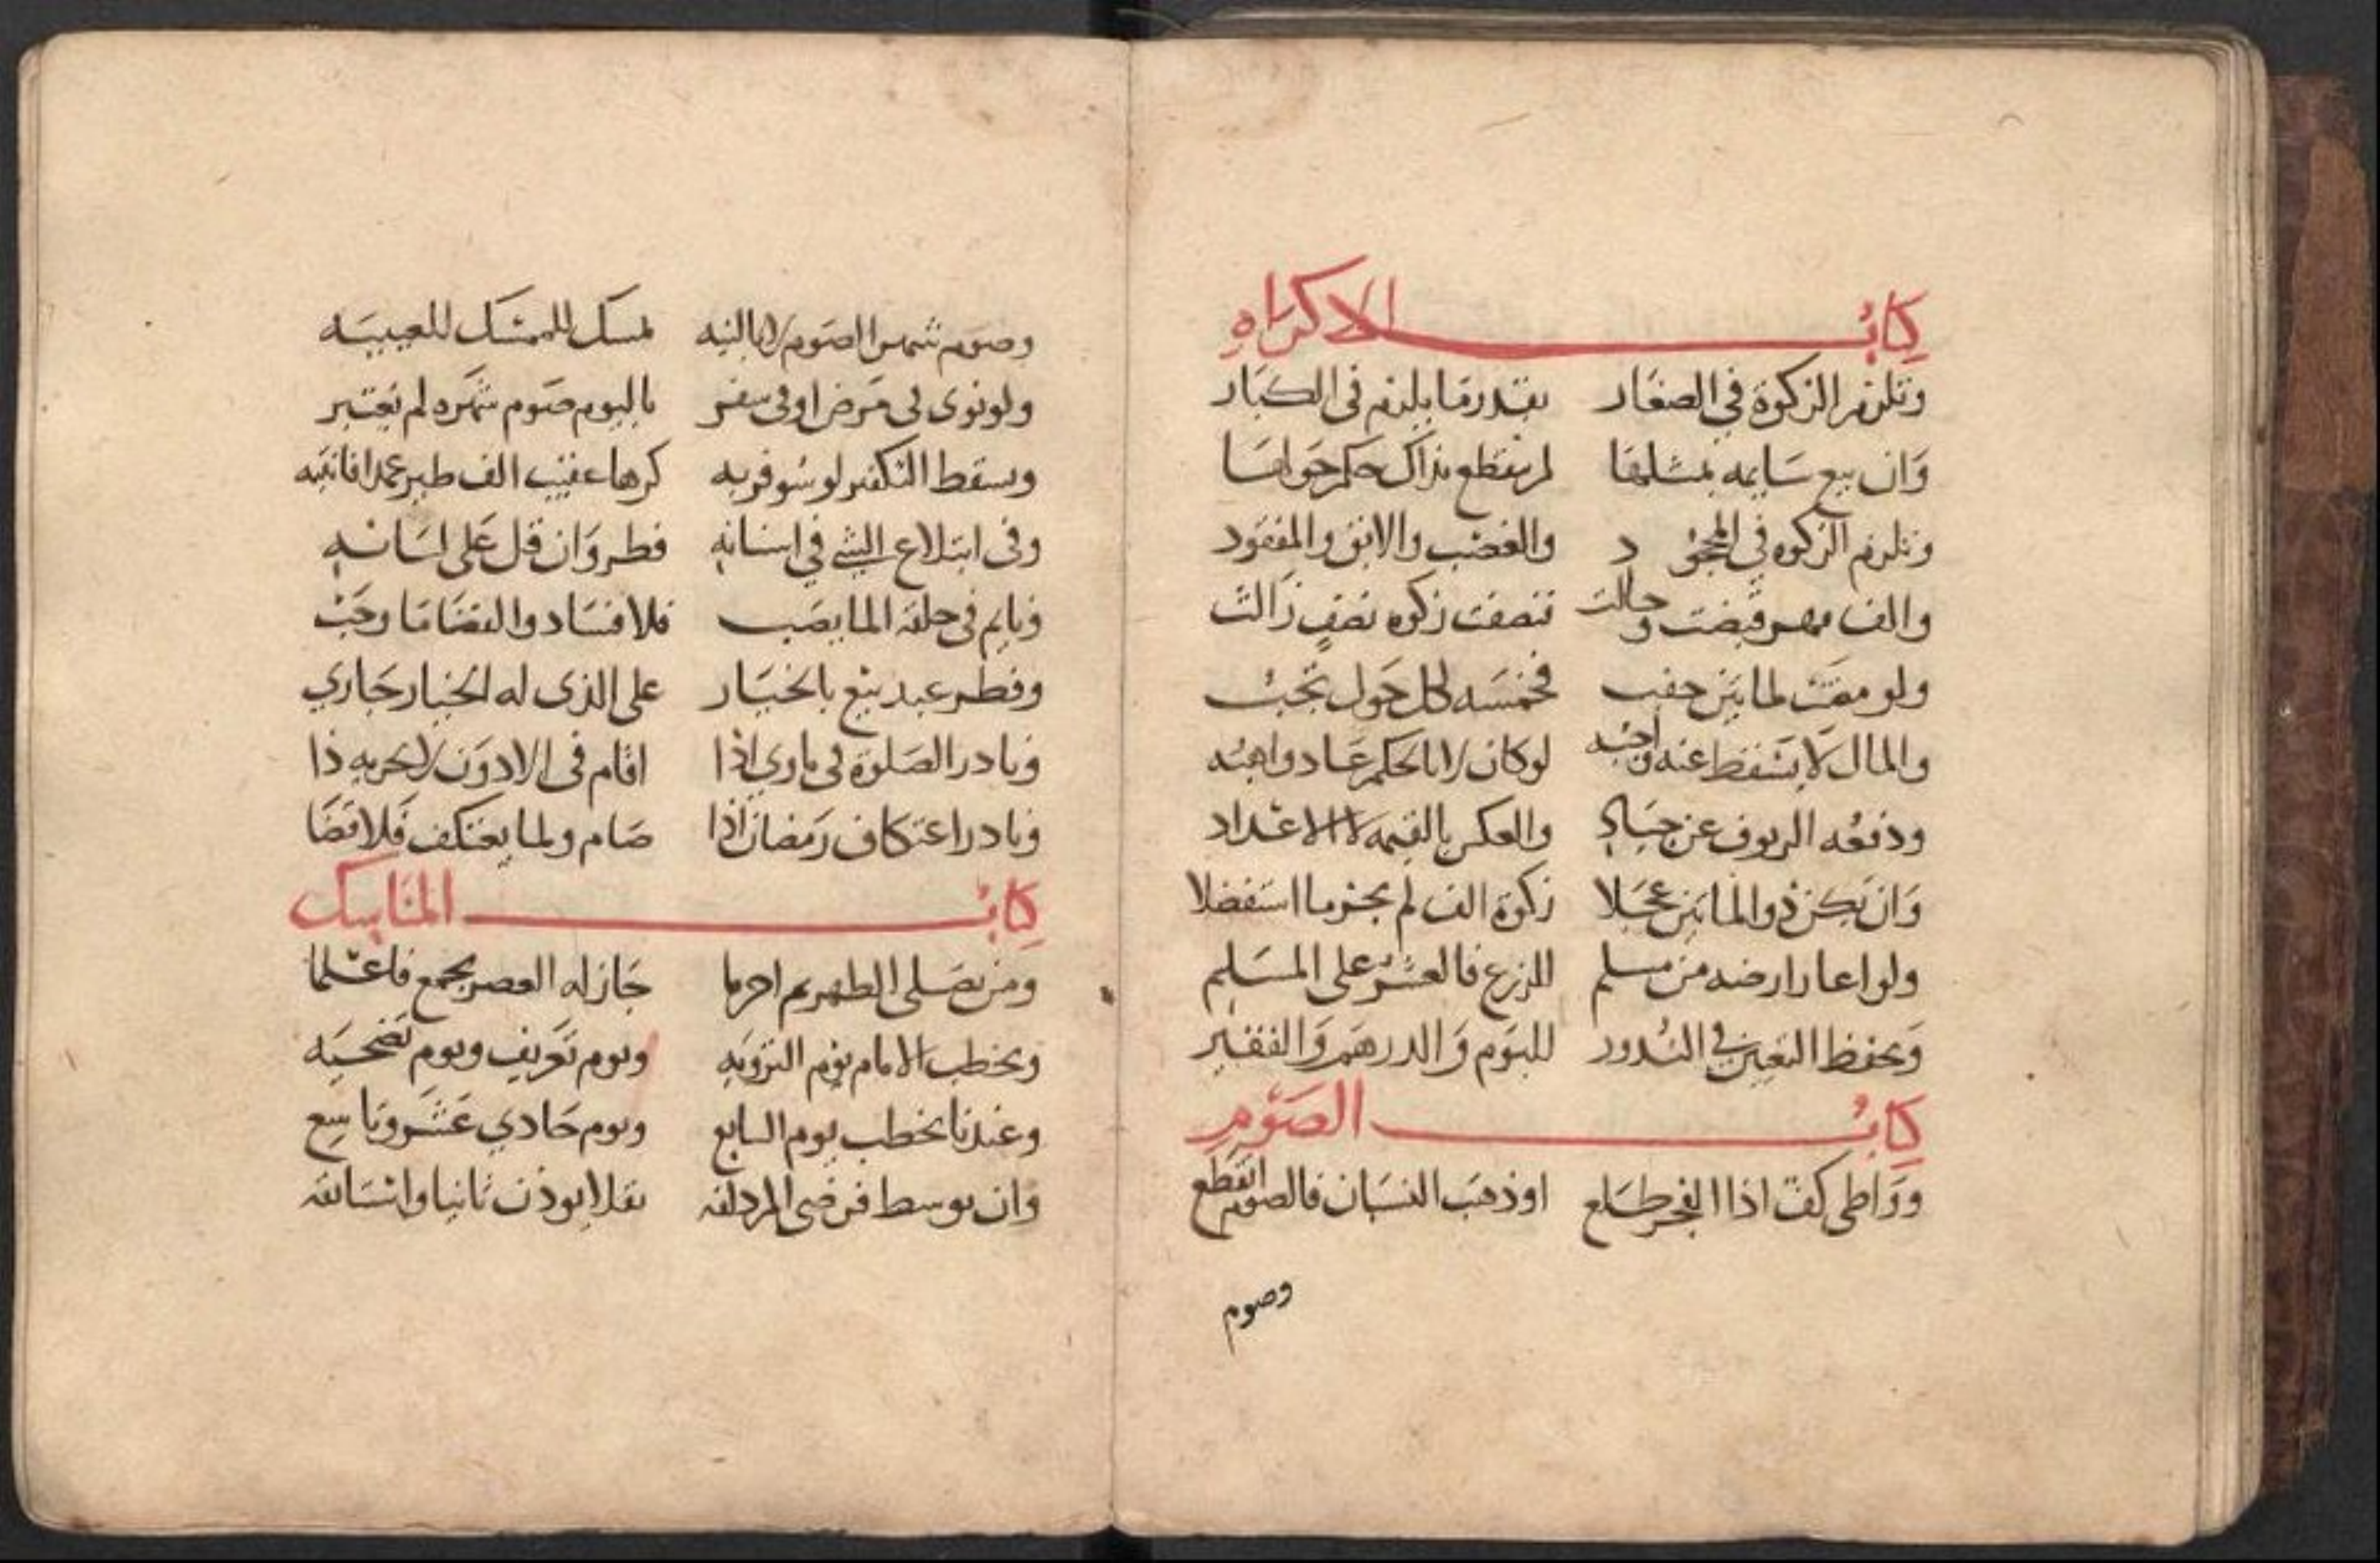 كتاب الاكراه
وتلزم الزكوة في الصغار بقدر ما يلزم في الكبار
وان بيع سايمه بمثلها لم ينقطع بذاك حكم حولها
وتلزم الزكوه في المجحود والغصب والابق والمفقود
والف مهر قبضت وحالت تنصفت زكوه نصف زالت
ولو مضت لمايتين حقب فخمسه لكل حول تجب
والمال لا يسقط عنه واجبه لو كان لا بالحكم عاد واهبه
ودفعه الزيوف عن جياد والعكس بالقيمه لا الاعداد
وان يكن ذو المايتين عجلا زكوة الف لم يجز ما استفضلا
ولو اعار ارضه من مسلم للزرع فالعشر على المسلم
ويحفظ التعيين في النذور لليوم والدرهم والفقير
كتاب الصوم
وواطي كف اذا الفجر طلع او ذهب النسيان فالصوم انقطع
وصوم
وصوم شهر الصوم لا بالنيه لمسك للممسك للعيبيه
ولو نوى في مرض او في سفر باليوم صوم شهره لم يعتبر
ويسقط التكفير لو سوفر به كرها عقيب الفطر عمدا فانتبه
وفي ابتلاع الشي في اسنانه فطر وان قل على لسانه
ونايم في حلقه الما يصب فلا فساد والقضا ما وجب
وفطر عبد بيع بالخيار على الذي له الخيار جاري
ونادر الصلوة في اذا اقام في الادون لا يجزيه ذا
ونادر اعتكاف رمضان اذا صام ولما يعتكف فلا قضا
كتاب المناسك
ومن يصلى الظهر ثم احرما جاز له العصر بجمع فاعلما
ويخطب الامام يوم الترويه ويوم تعريف ويوم تضحيه
وعندنا يخطب يوم السابع ويوم حادي عشر وتاسع
وان توسط فرضى المزدلفه نفلا يوذن ثانيا واستانفه